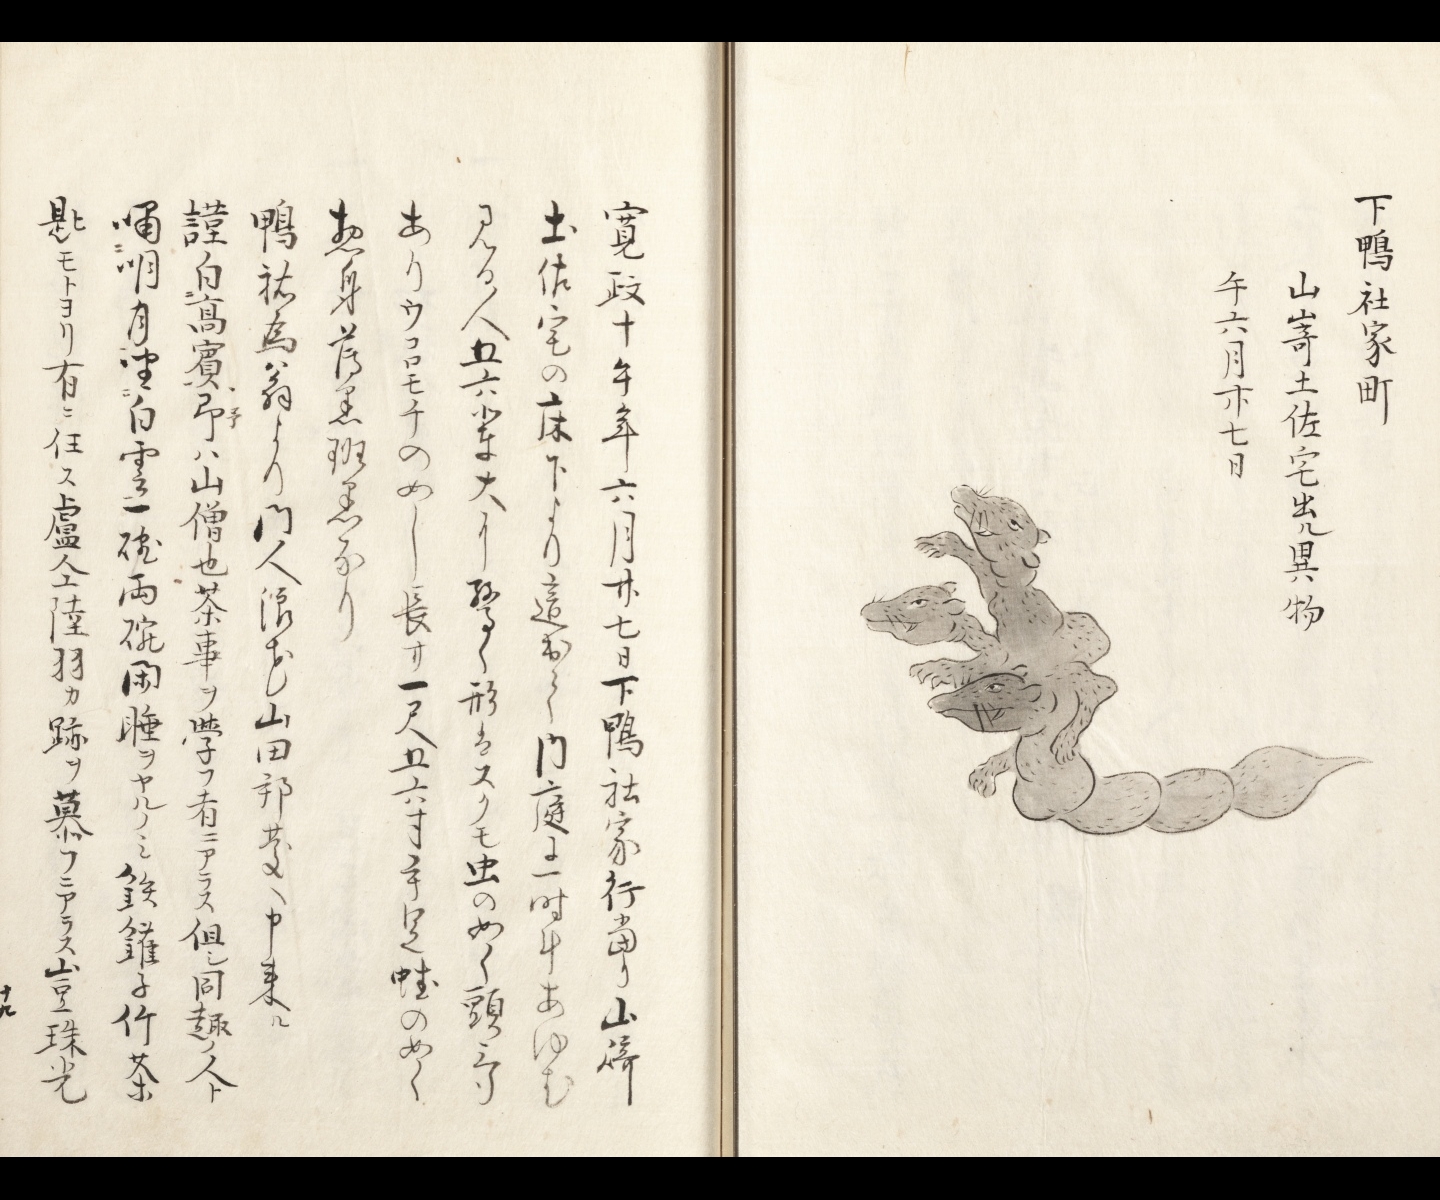 下鴨社家町
山嵜土佐宅出ル異物
午六月廿七日
寛政十午年六月廿七日下鴨社家行當り山嵜
土佐宅の床下より這出て内庭に一時半あゆむ
見る人五六輩大に驚く形はスクモ虫のめく頭三
ありウコロモチのめし長サ一尺五六寸手足蛙のめく
惣身薄黒班黒なり
鴨祐為翁より門人浪花山田邦へ申来ル
謹白高賓予ハ山僧也茶事ヲ學フ者ニアラス但シ同趣ノ人ト
嘯明月望白雲一碗両碗閑睡ヲヤルノミ銕鑵子竹茶
匙モトヨリ有ニ任ス盧仝陸羽カ跡ヲ慕フニアラス豈珠光
十九